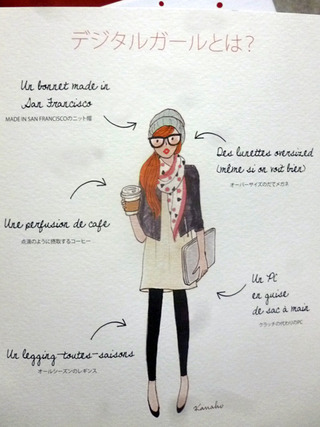 デジタルガールとは？
Un bonnet made in
San Francisco
MADE IN SAN FRANCISCOのニット帽
Des lunettes oversized
(même si on voit bien)
オーバーサイズのだてメガネ
Une perfusion de cafe
点滴のように摂取するコーヒー
Un PC
en guise
de sac à main
クラッチの代わりのPC
Un legging toutes-saisons
オールシーズンのレギンス
Kanako